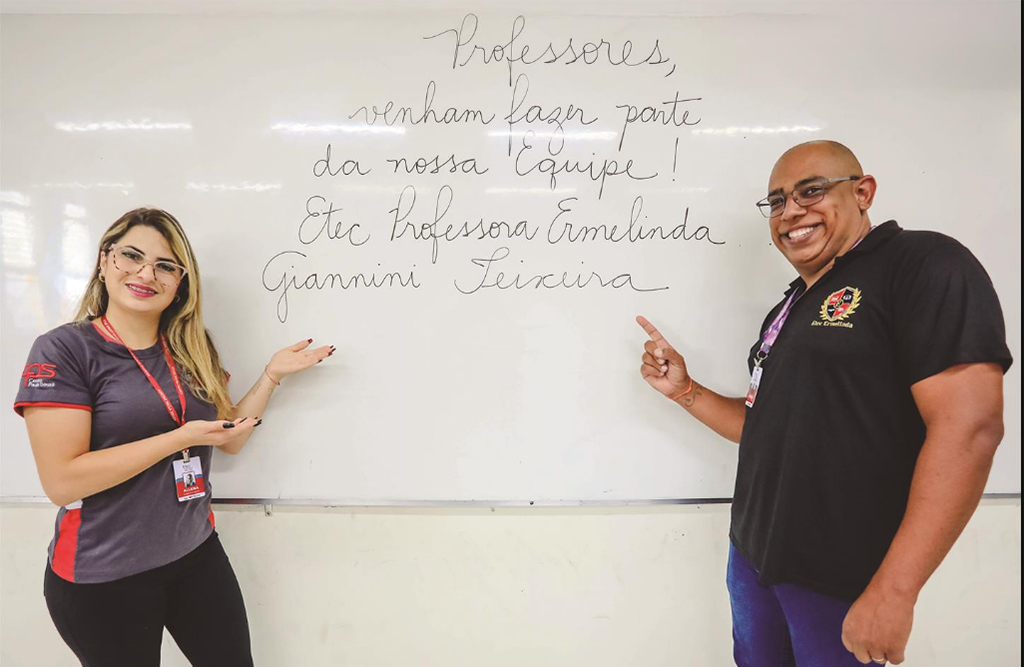 Professores,
venham fazer parte
da nossa Equipe!
Etec Professora Ermelinda
Giannini Teixeira
Centro
Paula Souza
Etec Ermelinda